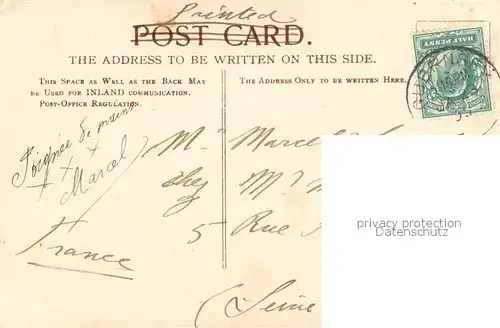 Printed
POST CARD.
THE ADDRESS TO BE WRITTEN ON THIS SIDE.
THIS SPACE AS WELL AS THE BACK MAY
BE USED FOR INLAND COMMUNICATION.
POST-OFFICE REGULATION.
THE ADDRESS ONLY TO BE WRITTEN HERE.
HALF PENNY
Poignée de main
+ + +
Marcel
France
M. Marcel
chez M.
5 Rue
(Seine
privacy protection
Datenschutz